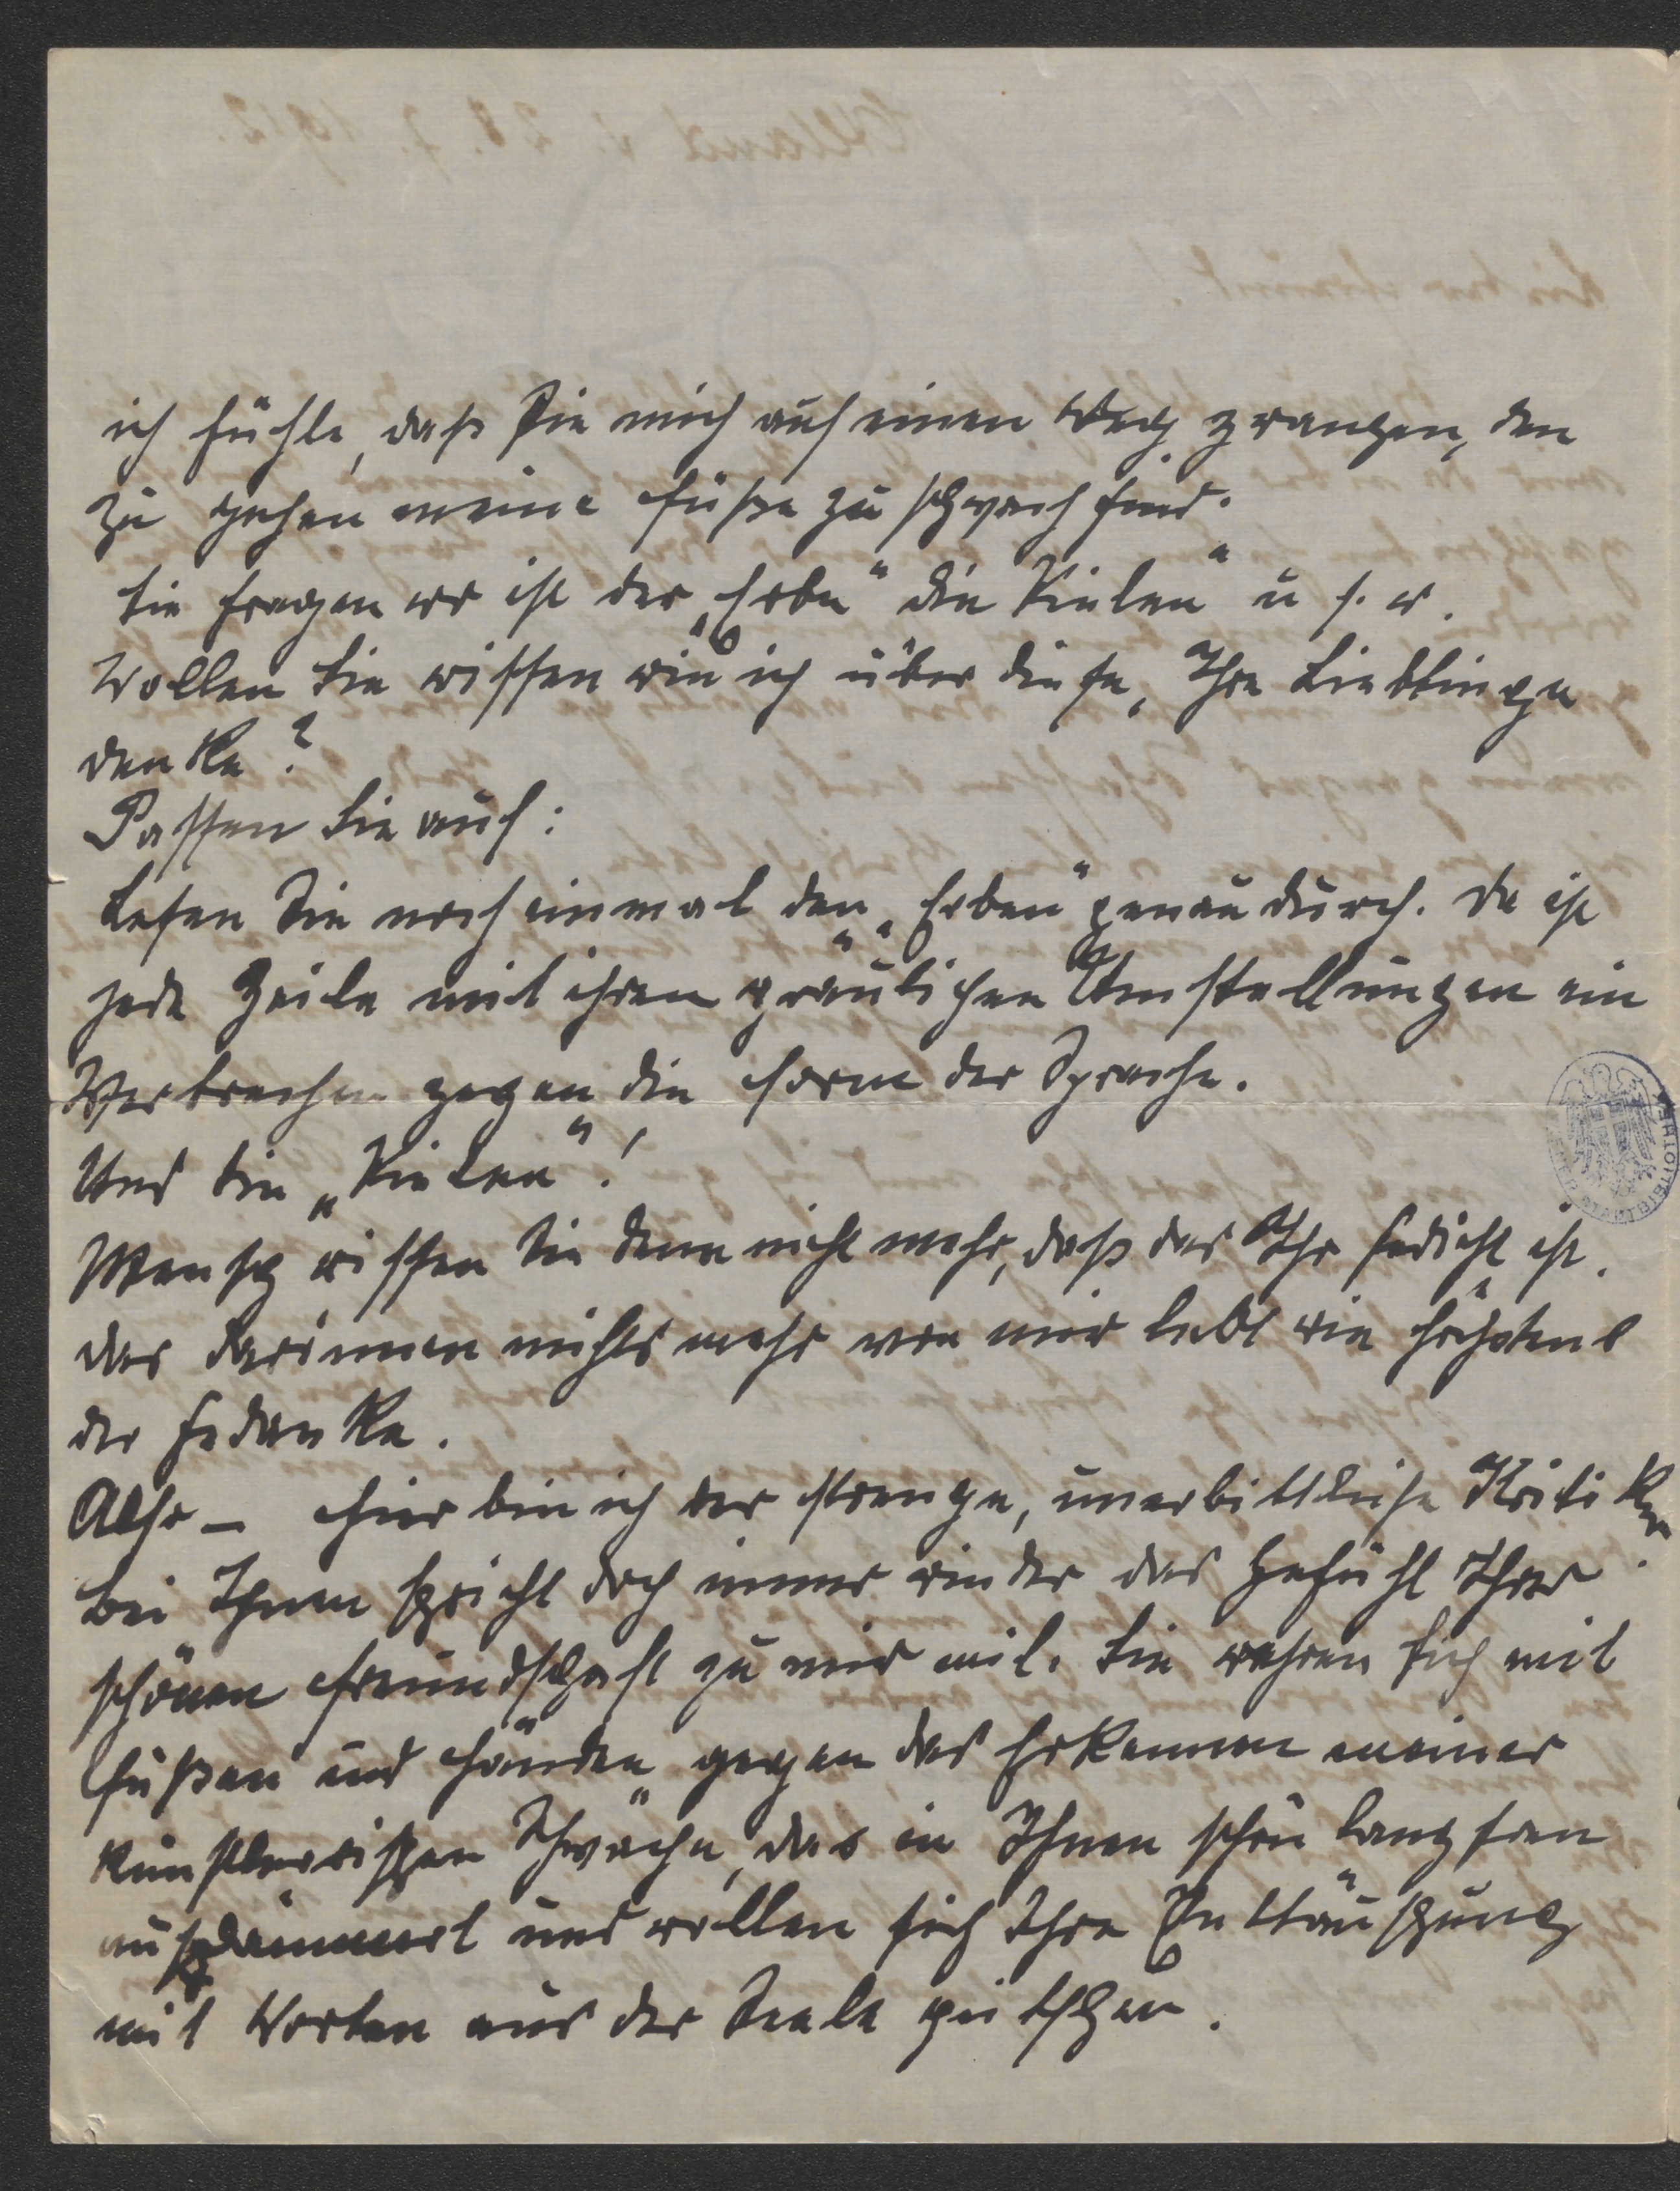 ich fühle, daß Sie mich auf einen Weg zwangen, den
zu gehen meine Füße zu schwach sind.
Sie fragen wo ist der „Erbe" die Vielen" u s. w.
Wollen Sie wissen wie ich über diese, Ihre Lieblinge
denke?
Passen Sie auf:
Lesen Sie noch einmal den „Erben" genau durch. Da ist
jede Zeile mit ihren gräulichen Umstellungen ein
Verbrechen gegen die Form der Sprache.
Und die „Vielen"!
Mensch wissen Sie denn nicht mehr, daß das Ihr Gedicht ist.
das darinnen nichts mehr von mir lebt wie höchstens
der Gedanke.
Also – hier bin ich der strenge, unerbittliche Kritiker.
Bei Ihnen spricht doch immer wieder das Gefühl Ihrer
schönen Freundschaft zu mir mit. Sie wehren sich mit
Füßen und Händen gegen das Erkennen meiner
künstlerischen Schwäche, das in Ihnen schon langsam
aufdämmert und wollen sich Ihre Enttäuschung
mit Worten aus der Seele peitschen.